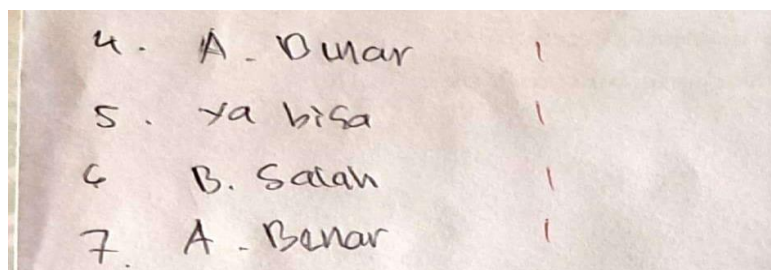 4. A. Benar 1
5. ya bisa 1
6 B. Salah 1
7. A. Benar 1